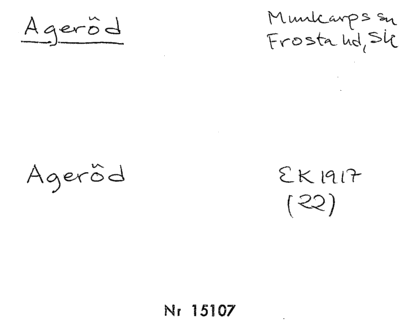 Ageröd
Munkarps sn
Frosta hd, Sk
Ageröd
EK 1917
(22)
Nr 15107